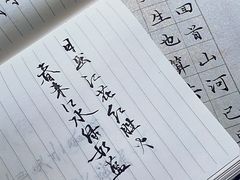 日出江花红胜火
春来江水绿如蓝
回首山河已
生也算